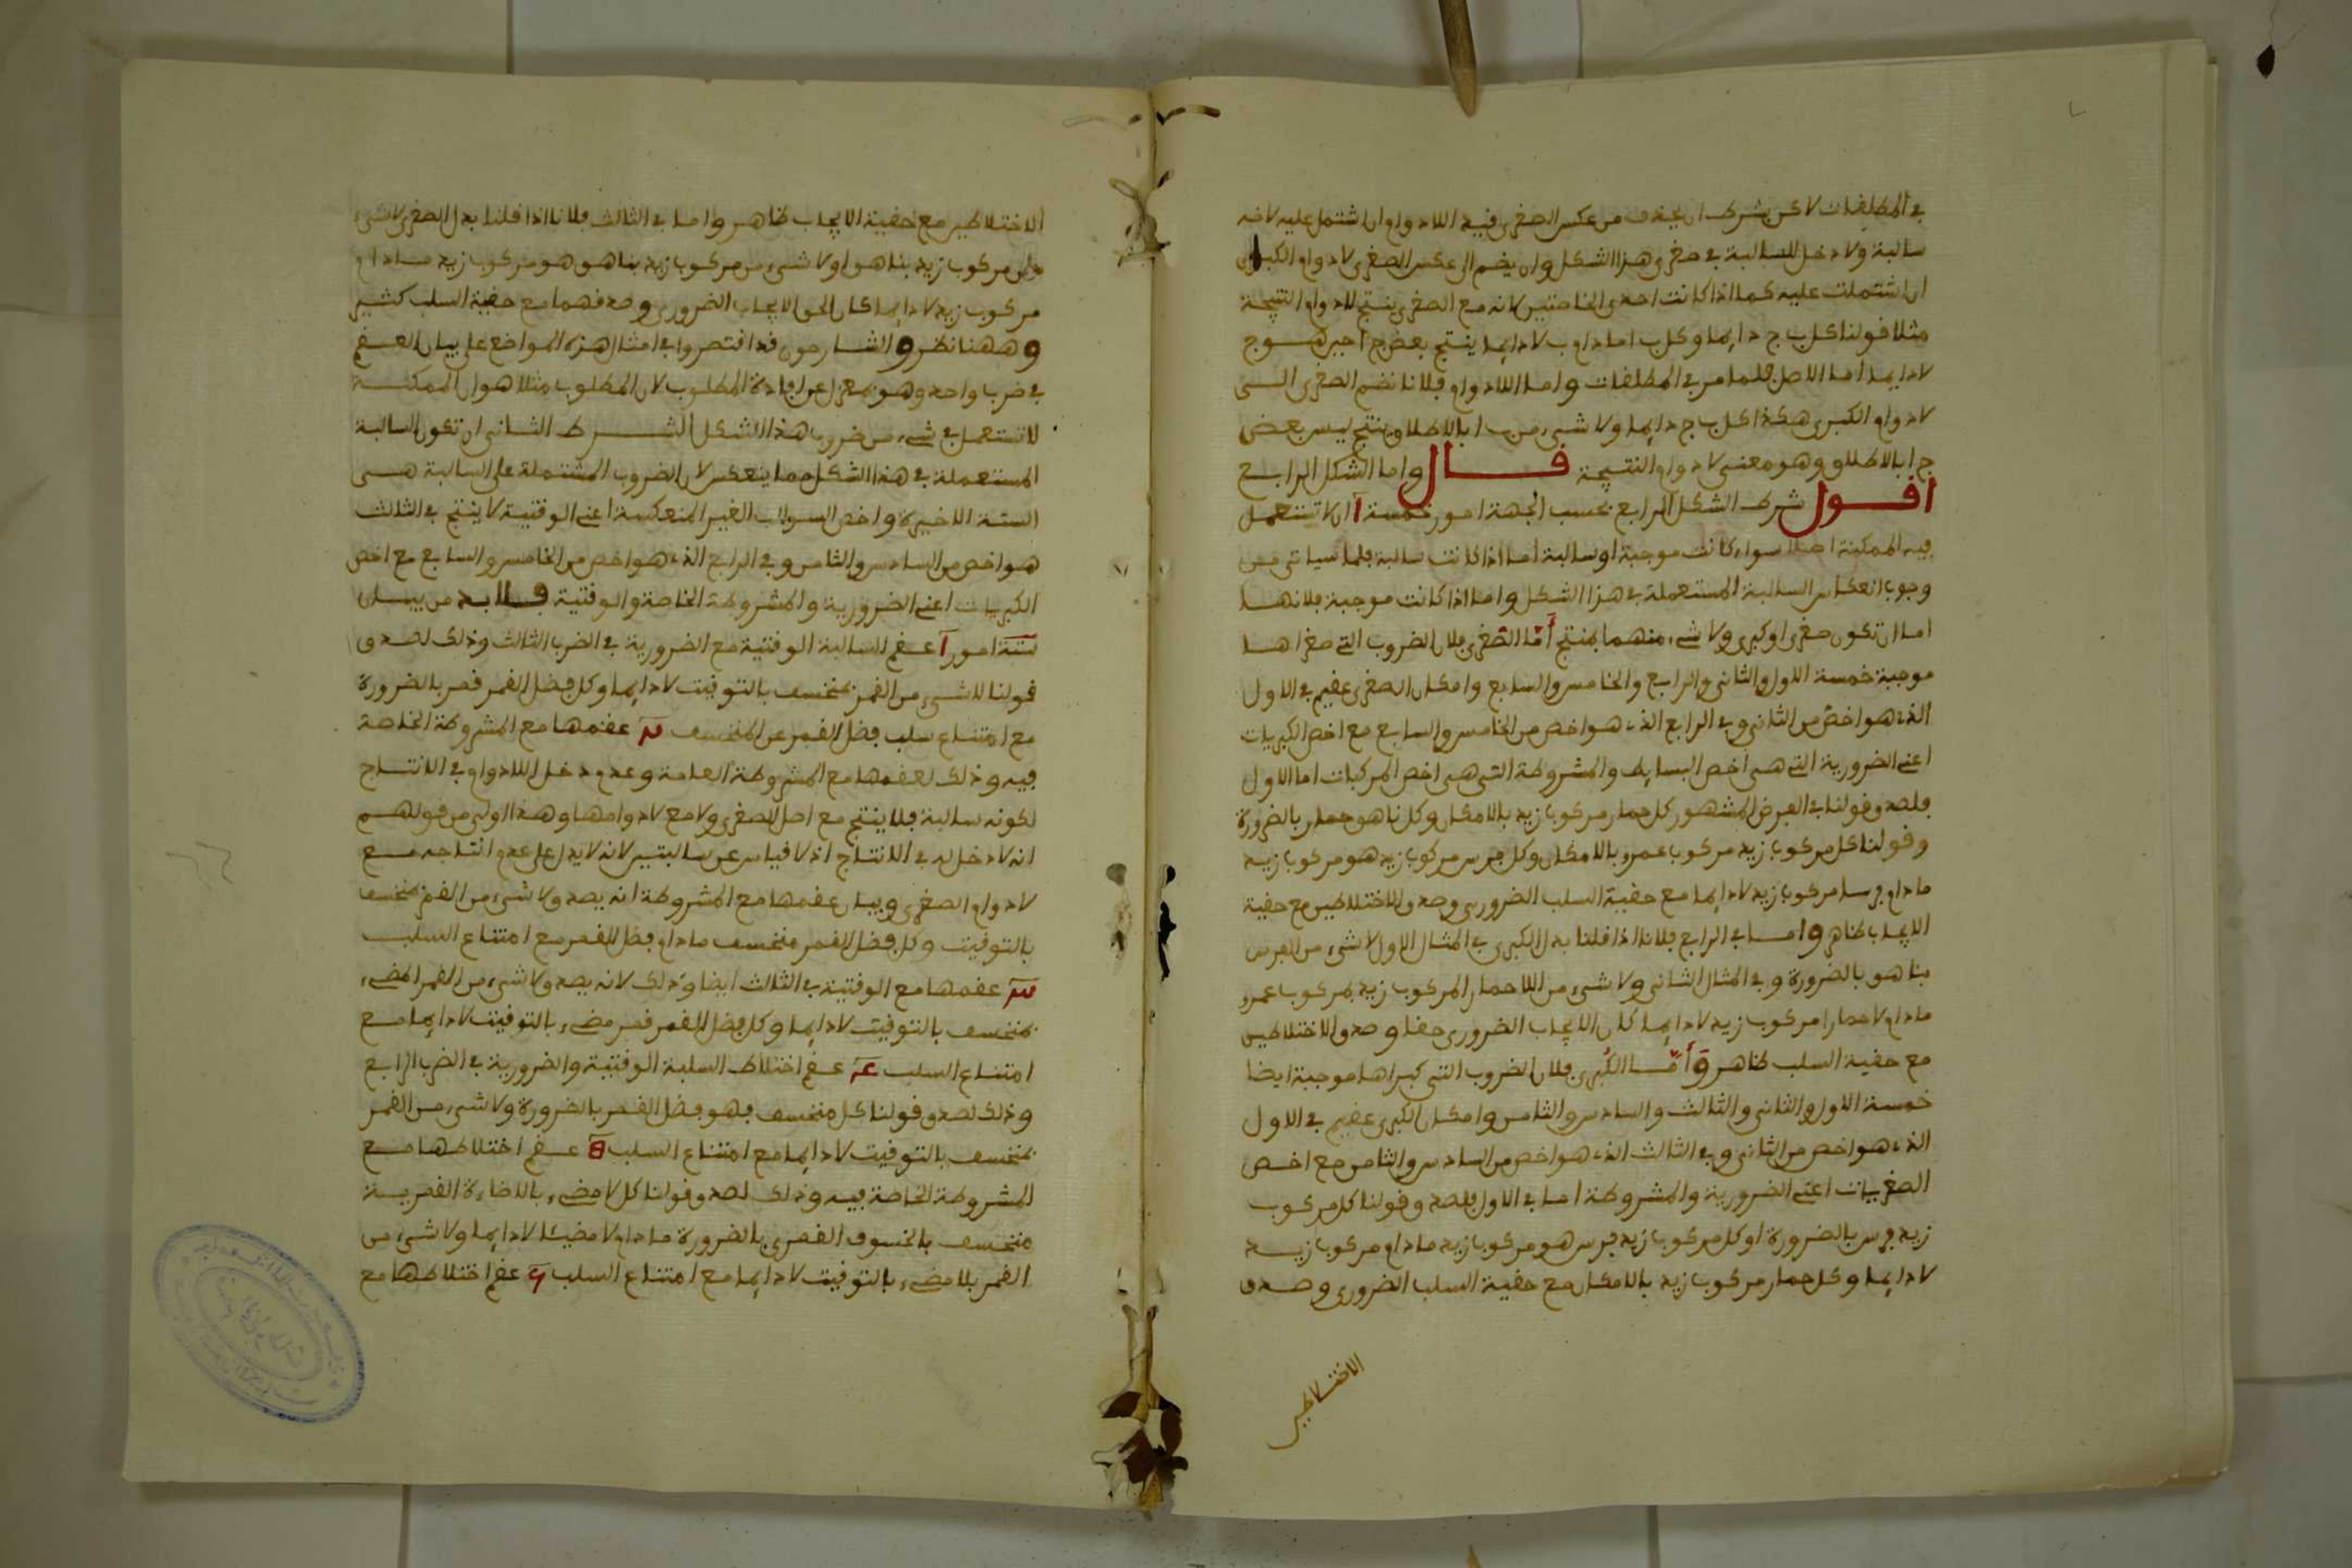 في المطلقات لاكن بشرط ان يحذف من عكس الصغرى قيد اللادوام ان اشتمل عليه لانه
سالبة ولا دخل للسالبة في صغرى هذا الشكل وان يضم الى عكس الصغرى لادوام الكبرى
ان اشتملت عليه كما اذا كانت احدى الخاصتين لانه مع الصغرى ينتج لادوام النتيجة
مثلا قولنا كل ب ج دايما وكل ب ا مادام ب لا دايما ينتج بعض ج ا حين هو ج
لا دايما اما الاصل فلما مر في المطلقات واما اللادوام فلانا نضم الصغرى الى
لادوام الكبرى هكذا كل ب ج دايما ولا شيء من ب ا بالاطلاق ينتج ليس بعض
ج ا بالاطلاق وهو معنى لادوام النتيجة قال واما الشكل الرابع
اقول شرط الشكل الرابع بحسب الجهة امور خمسة ا ان لا تستعمل
فيه الممكنة اصلا سواء كانت موجبة او سالبة اما اذا كانت سالبة فلما سياتي من
وجوب انعكاس السالبة المستعملة في هذا الشكل واما اذا كانت موجبة فلانها
اما ان تكون صغرى او كبرى ولا شيء منهما بمنتج أمّا الصّغرى فلان الضروب التي صغراها
موجبة خمسة الاول والثاني والرابع والخامس والسابع وامكان الصغرى عقيم في الاول
الذي هو اخص من الثاني وفي الرابع الذي هو اخص من الخامس والسابع مع اخص الكبريات
اعني الضرورية التي هي اخص البسايط والمشروطة التي هي اخص المركبات اما الاول
فلصدق قولنا في الفرض المشهور كل حمار مركوب زيد بالامكان وكل ناهق حمار بالضرورة
وقولنا كل مركوب زيد مركوب عمرو بالامكان وكل فرس مركوب زيد هو مركوب زيد
مادام فرسا مركوب زيد لا دايما مع حقية السلب الضروري وصدق الاختلاطين مع حقية
الايجاب ظاهر واما في الرابع فلانا اذا قلنا بدل الكبرى في المثال الاول لا شيء من الفرس
بناهق بالضرورة وفي المثال الثاني ولا شيء من اللاحمار المركوب زيد بمركوب عمرو
مادام لاحمارا مركوب زيد لا دايما كان الايجاب الضروري حقا وصدق الاختلاطين
مع حقية السلب ظاهر وَأمّا الكُبرى فلان الضروب التي كبراها موجبة ايضا
خمسة الاول والثاني والثالث والسادس والثامن وامكان الكبرى عقيم في الاول
الذي هو اخص من الثاني وفي الثالث الذي هو اخص من السادس والثامن مع اخص
الصغريات اعني الضرورية والمشروطة اما في الاول فلصدق قولنا كل مركوب
زيد فرس بالضرورة او كل مركوب زيد فرس هو مركوب زيد مادام مركوب زيد
لا دايما وكل حمار مركوب زيد بالامكان مع حقية السلب الضروري وصدق
الاختلاطين
الاختلاطين مع حقية الايجاب ظاهر واما في الثالث فلانا اذا قلنا بدل الصغرى لا شيء
من مركوب زيد بناهق او لا شيء من مركوب زيد بناهق هو مركوب زيد مادام
مركوب زيد لا دايما كان الحق الايجاب الضروري وصدقهما مع حقية السلب كثير
وههنا نظر والشارحون قد اقتصروا في امثال هذه المواضع على بيان العقم
في ضرب واحد وهو بمعزل عن افادة المطلوب لان المطلوب مثلا هو ان الممكنة
لا تستعمل في شيء من ضروب هذا الشكل الشرط الثاني ان تكون السالبة
المستعملة في هذا الشكل مما ينعكس لان الضروب المشتملة على السالبة هي
الستة الاخيرة واخص السوالب الغير المنعكسة اعني الوقتية لا ينتج في الثالث
هو اخص من السادس والثامن وفي الرابع الذي هو اخص من الخامس والسابع مع اخص
الكبريات اعني الضرورية والمشروطة الخاصة والوقتية فلابد من بيان
ستة امور ا عقم السالبة الوقتية مع الضرورية في الضرب الثالث وذلك لصدق
قولنا لا شيء من القمر بمنخسف بالتوقيت لا دايما وكل فضل القمر قمر بالضرورة
مع امتناع سلب فضل القمر عن المنخسف عقمها مع المشروطة الخاصة
فيه وذلك لعقمها مع المشروطة العامة وعدم دخل اللادوام في الانتاج
لكونه سالبة فلا ينتج مع اصل الصغرى ولا مع لادوامها وهذا اولى من قولهم
انه لا دخل له في الانتاج اذ لا قياس عن سالبتين لانه لا يدل على عدم انتاجه مع
لادوام الصغرى وبيان عقمها مع المشروطة انه يصدق لا شيء من القمر بمنخسف
بالتوقيت وكل فضل القمر منخسف مادام فضل القمر مع امتناع السلب
عقمها مع الوقتية في الثالث ايضا وذلك لانه يصدق لا شيء من القمر المضيء
بمنخسف بالتوقيت لا دايما وكل فضل القمر قمر مضيء بالتوقيت لا دايما مع
امتناع السلب عقم اختلاط السلبة الوقتية والضرورية في الضرب الرابع
وذلك لصدق قولنا كل منخسف فهو فضل القمر بالضرورة ولا شيء من القمر
بمنخسف بالتوقيت لا دايما مع امتناع السلب عقم اختلاطها مع
المشروطة الخاصة فيه وذلك لصدق قولنا كل لا مضيء بالاضاءة القمرية
منخسف بالخسوف القمري بالضرورة مادام لا مضيئا لا دايما ولا شيء من
القمر بلا مضيء بالتوقيت لا دايما مع امتناع السلب عقم اختلاطها مع